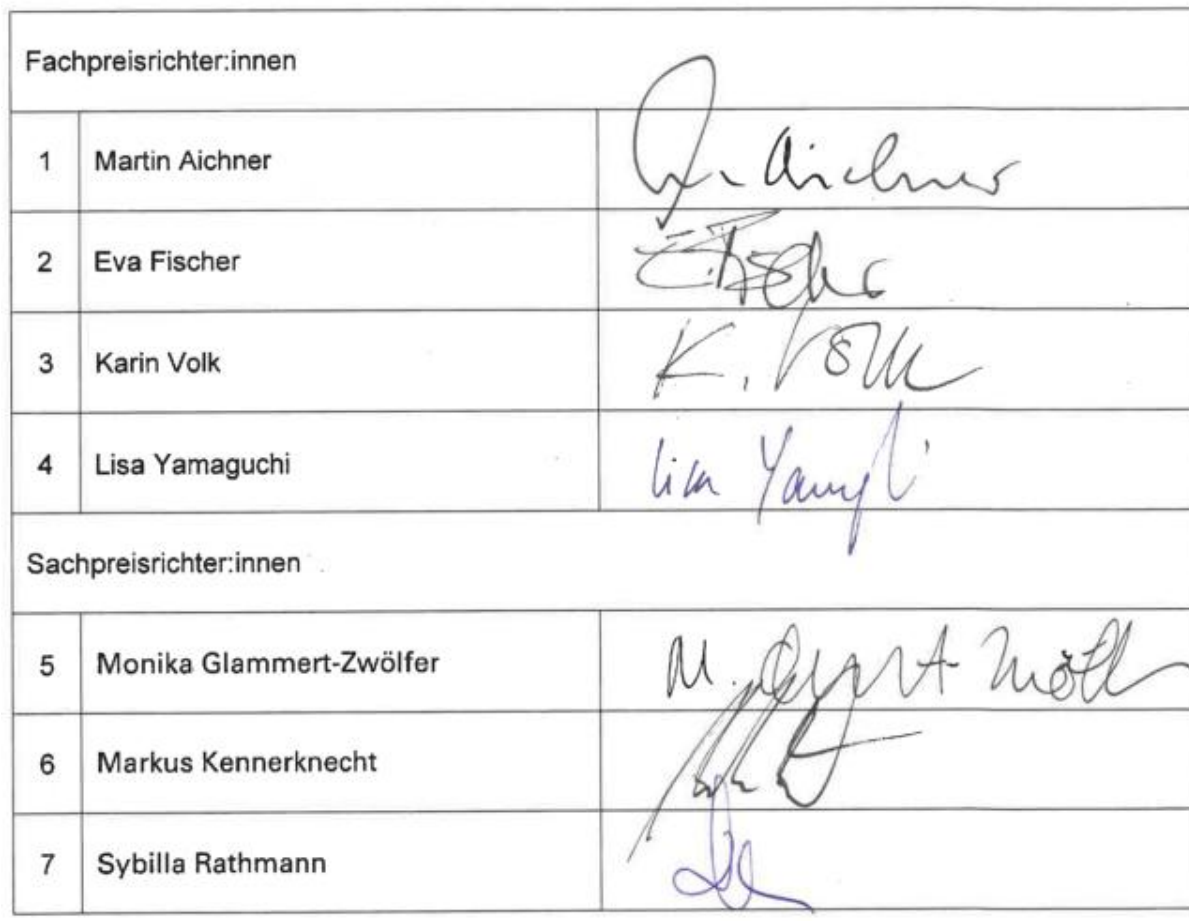 Fachpreisrichter:innen
1 Martin Aichner Aichner
2 Eva Fischer
3 Karin Volk K. Volk
4 Lisa Yamaguchi Lisa
Sachpreisrichter:innen
5 Monika Glammert-Zwölfer M.
6 Markus Kennerknecht
7 Sybilla Rathmann